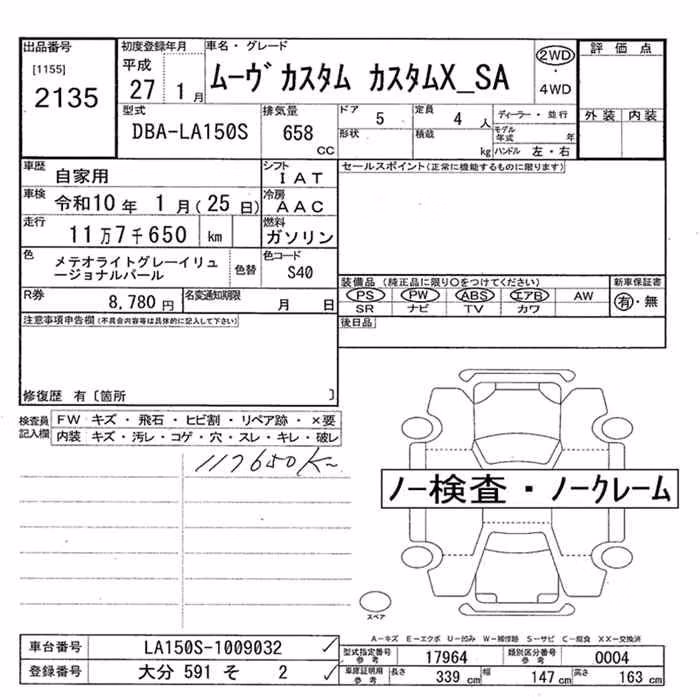 出品番号
[1155]
2135
初度登録年月
平成
27 1月
車名・グレード
ムーヴ カスタム カスタムX_SA
2WD
・
4WD
評価点
外装 内装
型式
DBA-LA150S
排気量
658
CC
ドア 5
形状
定員 4 人
積載 kg
ディーラー・並行
モデル年式 年
ハンドル 左・右
車歴 自家用
シフト
IAT
車検 令和10 年 1 月 ( 25 日)
冷房
AAC
走行 11万7千650 km
燃料
ガソリン
色 メテオライトグレーイリュ
ージョナルパール
色替
色コード
S40
R券 8,780 円
名変通知期限 月 日
セールスポイント(正常に機能するものに限ります)
装備品 (純正品に限り○をつけてください)
PS PW ABS エアB AW
SR ナビ TV カワ
新車保証書
有・無
後日品
注意事項申告欄(不具合内容等は具体的に記入して下さい)
修復歴 有〔箇所 〕
検査員
記入欄
FW キズ・飛石・ヒビ割・リペア跡・×要
内装 キズ・汚レ・コゲ・穴・スレ・キレ・破レ
117650K
ノー検査・ノークレーム
スペア
A-キズ E-エクボ U-凹み W-補修跡 S-サビ C-腐食 XX-交換済
車台番号 LA150S-1009032
登録番号 大分 591 そ 2
型式指定番号
参考
17964
類別区分番号
参考
0004
車庫証明用
参考
長さ 339 cm
幅 147 cm
高さ 163 cm